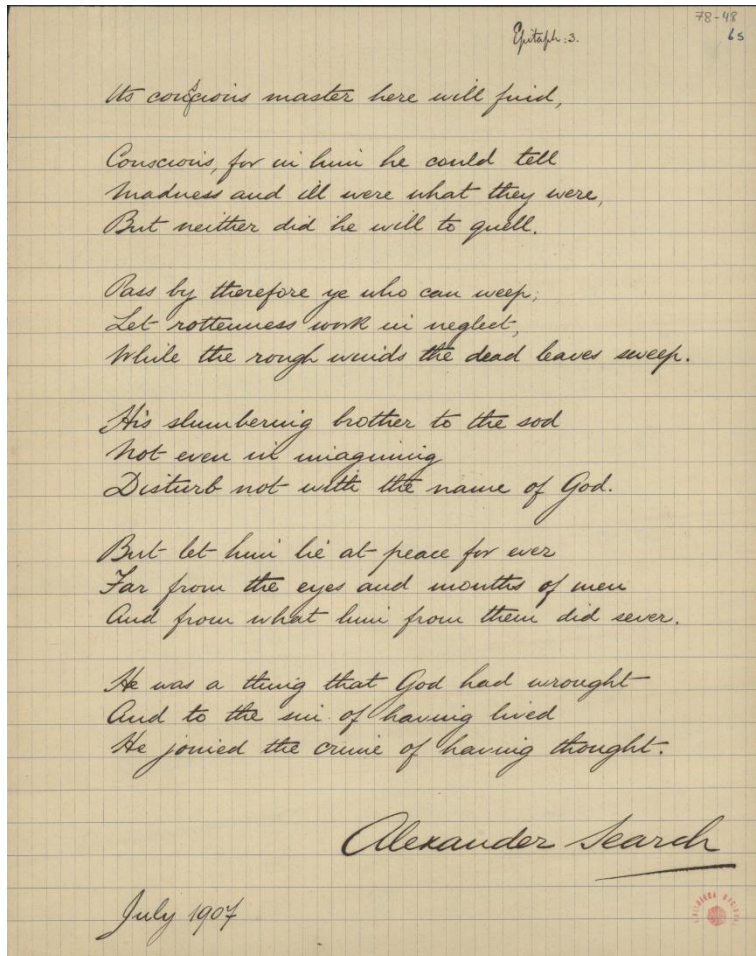 78-48
65
Epitaph: 3.
Its conscious master here will find,
Conscious, for in him he could tell
Madness and ill were what they were,
But neither did he will to quell.
Pass by therefore ye who can weep;
Let rottenness work in neglect,
While the rough winds the dead leaves sweep.
His slumbering brother to the sod
Not even in imagining
Disturb not with the name of God.
But let him lie at peace for ever
Far from the eyes and mouths of men
And from what him from them did sever.
He was a thing that God had wrought
And to the sin of having lived
He joined the crime of having thought.
Alexander Search
July 1907